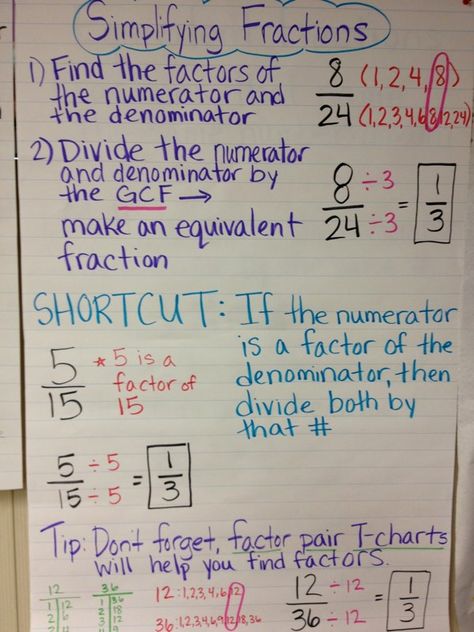 Simplifying Fractions
1) Find the factors of
the numerator and
the denominator
8/24 (1,2,4,8)
(1,2,3,4,6,8,12,24)
2) Divide the numerator
and denominator by
the GCF →
make an equivalent
fraction
8 ÷3 / 24 ÷3 = 1/3
SHORTCUT: If the numerator
is a factor of the
denominator, then
divide both by
that #
5/15 * 5 is a
factor of
15
5 ÷ 5 / 15 ÷ 5 = 1/3
Tip: Don't forget, factor pair T-charts
will help you find factors.
12
1 12
2 6
36
1 36
2 18
3 12
12: 1,2,3,4,6,12
36: 1,2,3,4,6,9,12,18,36
12 ÷ 12 / 36 ÷ 12 = 1/3